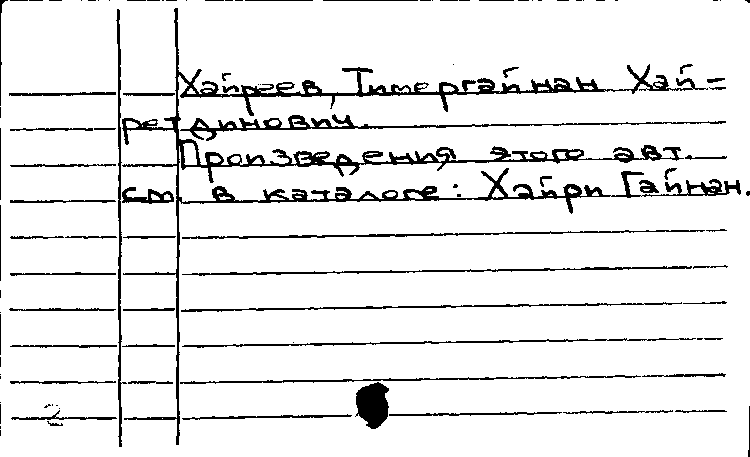 Хайреев, Тимергайнан Хай-
ретдинович.
Произведения этого авт.
см. в каталоге: Хайри Гайнан.
2